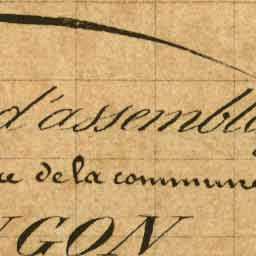 d'assembl
de la commune
GON